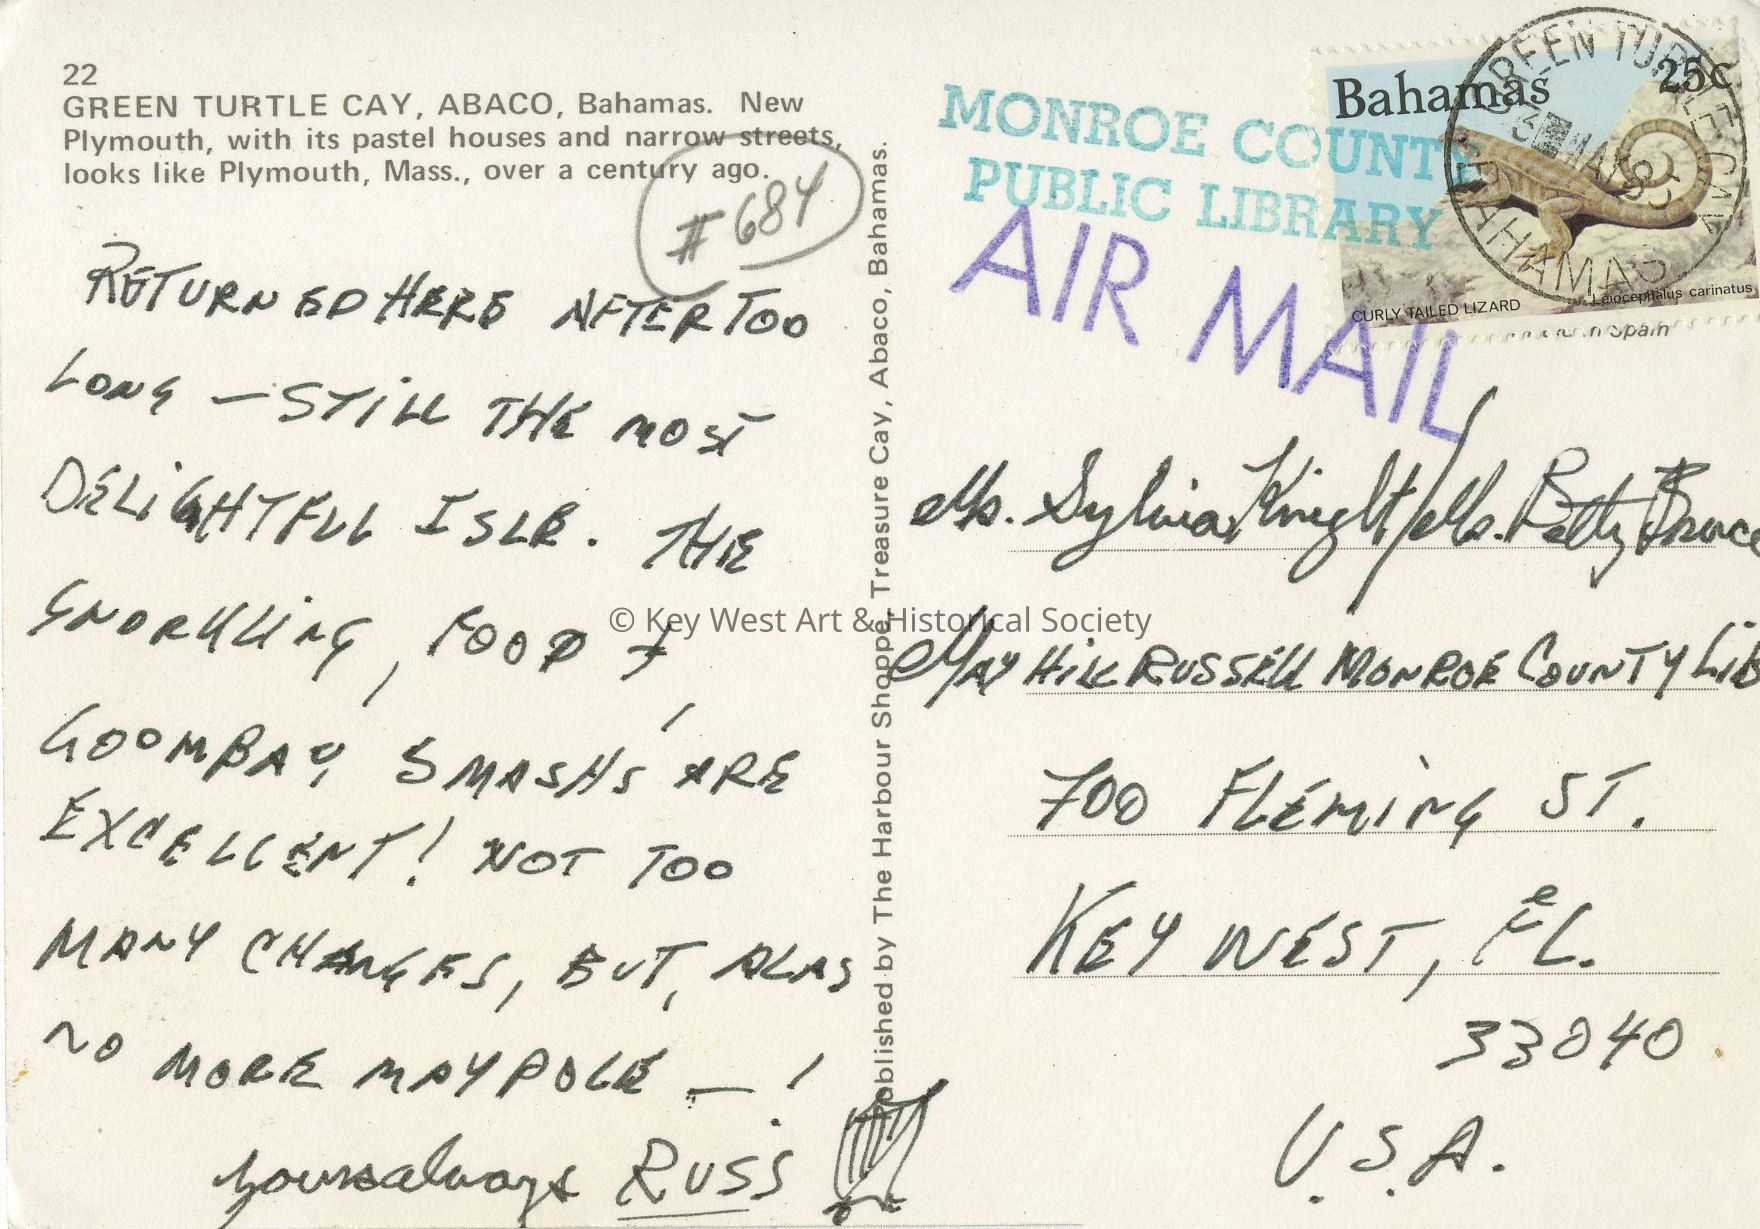 22
GREEN TURTLE CAY, ABACO, Bahamas. New
Plymouth, with its pastel houses and narrow streets,
looks like Plymouth, Mass., over a century ago.
#684
RETURNED HERE AFTER TOO
LONG — STILL THE MOST
DELIGHTFUL ISLE. THE
SNORKLING, FOOD &
GOOMBAY SMASHS ARE
EXCELLENT! NOT TOO
MANY CHANGES, BUT, ALAS
NO MORE MAYPOLE — !
yours always RUSS
Published by The Harbour Shoppe, Treasure Cay, Abaco, Bahamas.
MONROE COUNTY
PUBLIC LIBRARY
AIR MAIL
Bahamas 25c
CURLY TAILED LIZARD Leiocephalus carinatus
in Spain
GREEN TURTLE CAY
BAHAMAS
Ms. Sylvia Knight/Ms. Betty Bruce
May Hill RUSSELL MONROE COUNTY LIB
700 FLEMING ST.
KEY WEST, FL.
33040
U.S.A.
© Key West Art & Historical Society